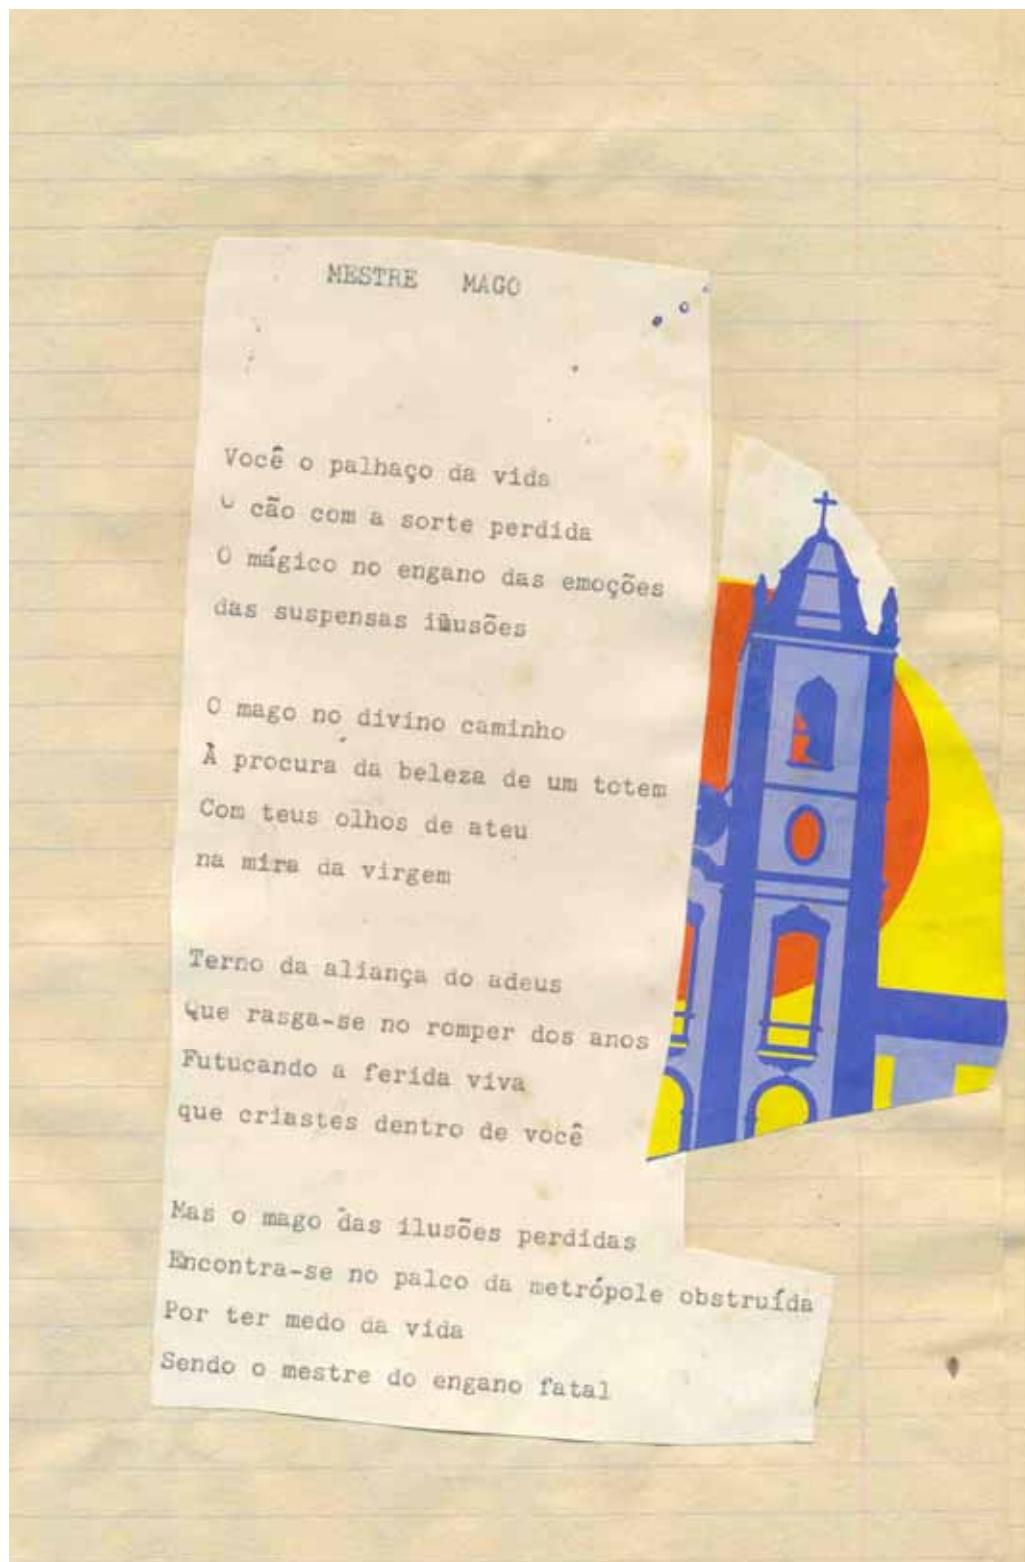 MESTRE MAGO
Você o palhaço da vida
O cão com a sorte perdida
O mágico no engano das emoções
das suspensas ilusões
O mago no divino caminho
À procura da beleza de um totem
Com teus olhos de ateu
na mira da virgem
Terno da aliança do adeus
Que rasga-se no romper dos anos
Futucando a ferida viva
que criastes dentro de você
Mas o mago das ilusões perdidas
Encontra-se no palco da metrópole obstruída
Por ter medo da vida
Sendo o mestre do engano fatal